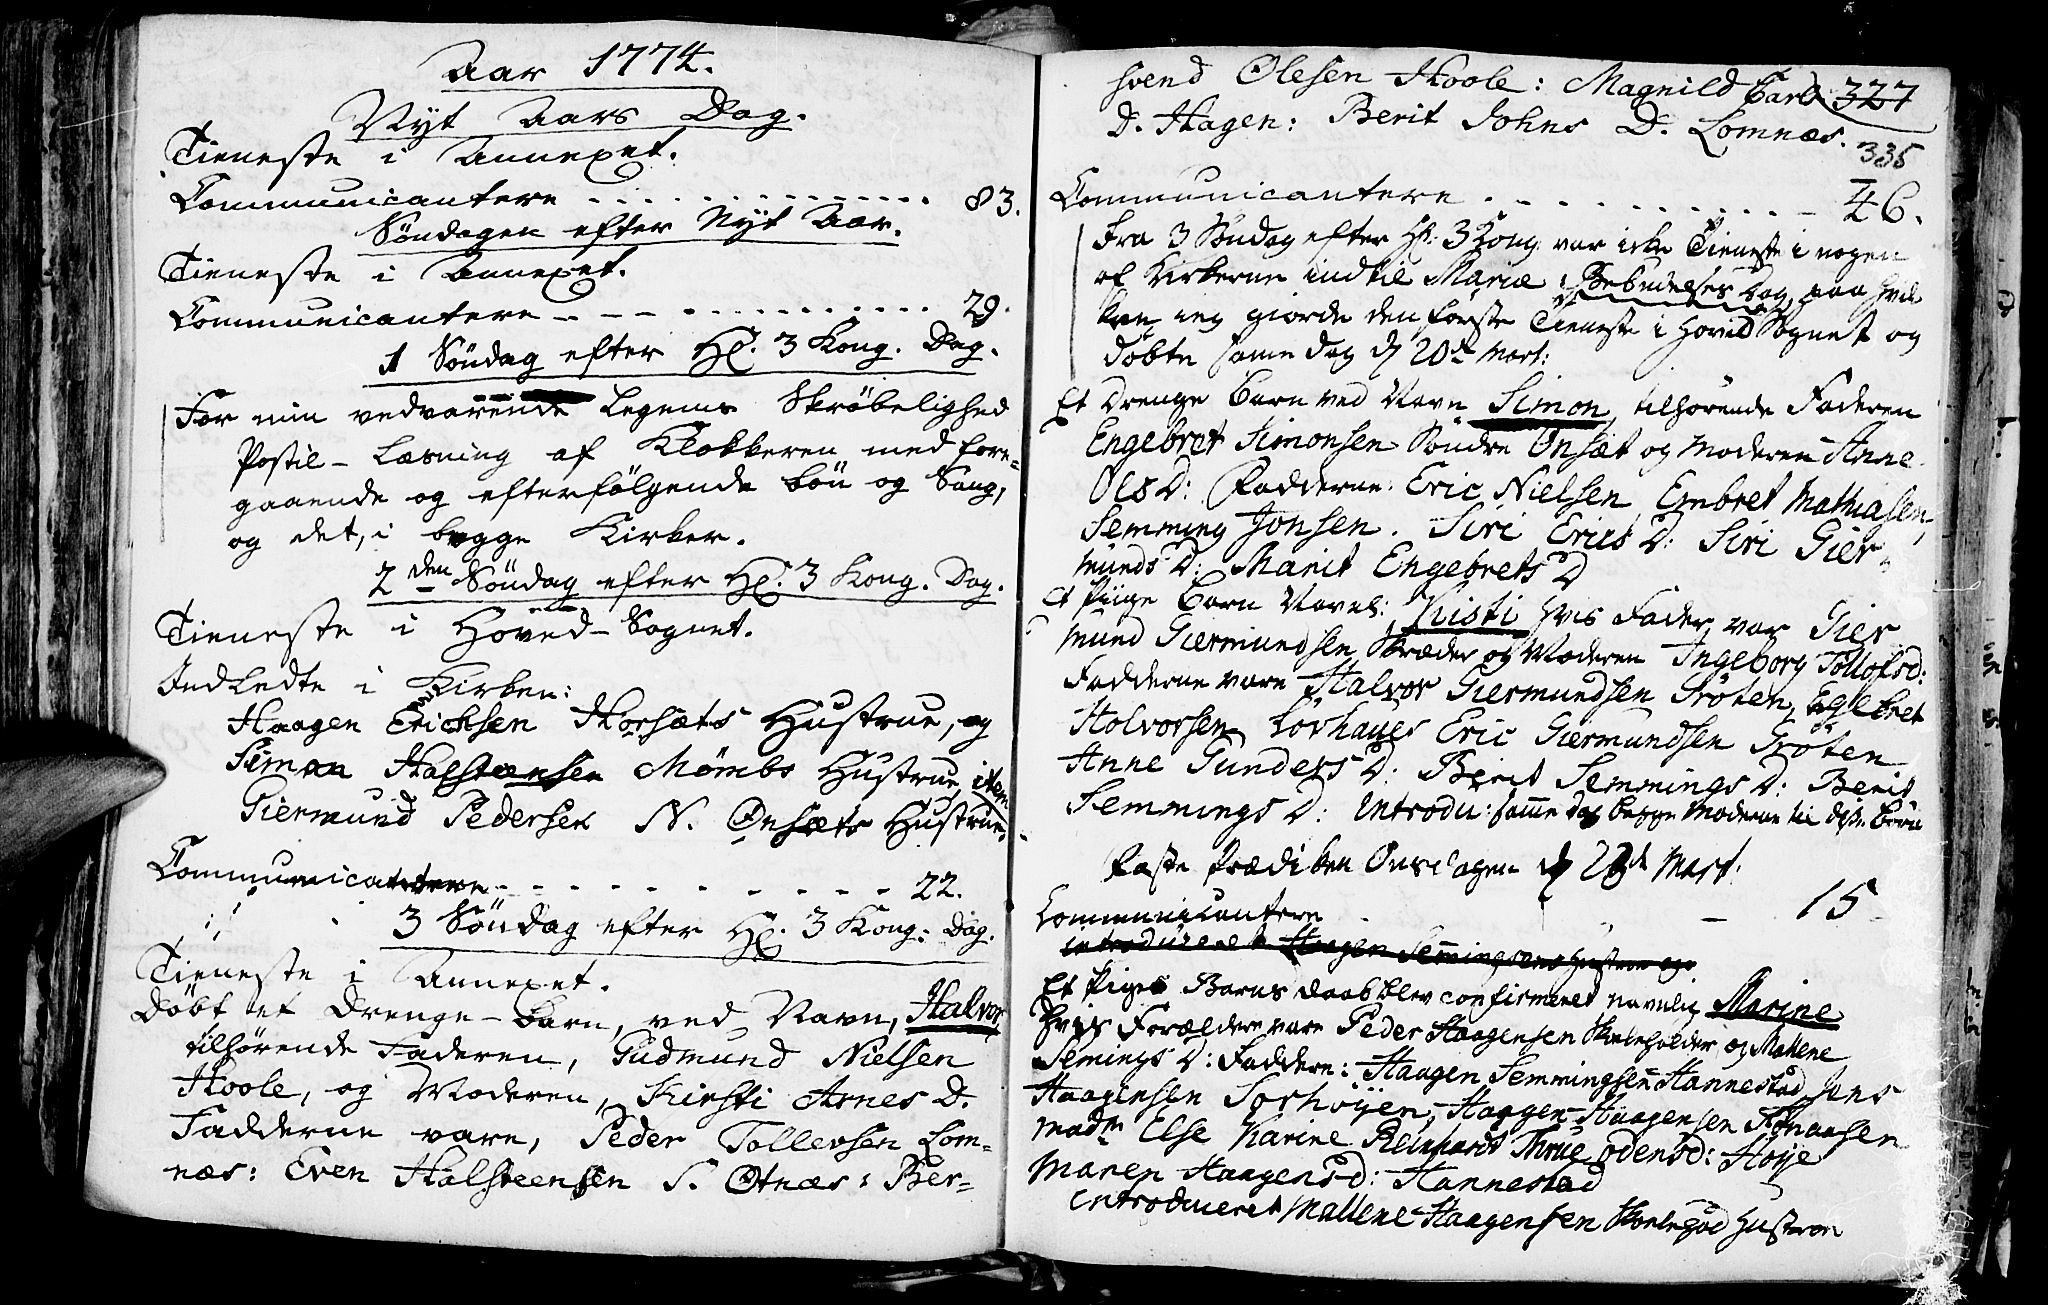 Aar 1774.
Nyt Aars Dag.
Tieneste i Annexet.
Communicantere 83.
Søndagen efter Nyt Aar.
Tieneste i Annexet.
Communicantere 29.
1 Søndag efter Hl. 3 Kong. Dag.
For min vedvarende Legems Skrøbelighed
Postil-Læsning af Klokkeren med fore-
gaaende og efterfølgende bön og Sang,
og det, i begge Kirker.
2den Søndag efter Hl. 3 Kong. Dag.
Tieneste i Hoved-Sognet.
Indledte i Kirken:
Haagen Ericksen Horsæts Hustrue, og
Simon Halsteensen Mømbs Hustrue, item
Giermund Pedersen N. Ønsæts Hustrue.
Communicantere 22.
3 Søndag efter Hl. 3 Kong: Dag.
Tieneste i Annexet.
Døbt et Drenge-barn, ved Navn, Halvor
tilhørende Faderen, Gudmund Nielsen
Hoole, og Moderen, Kirsti Arnes D.
Fadderne vare, Peder Tollevsen Lom-
næs: Even Halsteensen S. Otnæs: Ber-
svend Olesen Hoole: Magnild Carls 327
D. Hagen: Berit Johns D. Lomnæs.
335
Communicantere 46.
Fra 3 Søndag efter Hl: 3 Kong var ikke Tieneste i nogen
af Kirkerne indtil Mariæ Bebudelses Dag, paa hvil
ken ieg giorde den første Tieneste i Hoved Sognet og
døbte samme dag d 20de Mart:
Et Drenge Barn ved Navn Simon, tilhørende Faderen
Engebret Simonsen Søndre Onsæt og Moderen Anne
Ols D: Fadderne: Eric Nielsen, Embret Mathiasen,
Semming Jonsen. Siri Erics D: Siri Gier-
munds D: Marit Engebrets D
Et Piige Barn Navnl: Kisti hvis Fader var Gier
mund Giermundsen Skræder og Moderen Ingeborg Tollofsd:
Fadderne vare Halvor Giermundsen Grøten, Egelbret
Holvorsen Lovhaues Eric Giermundsen Grøten
Anne Gunders D: Berit Semmings D: Berit
Semmings D: Introdu: samme dag begge Moderne til disse Børn
Faste Prædiken Onsdagen d 23de Mart:
Communicantere 15
introduceret Haagen Semmingsens Hustrue og
Et Piige Barns daab blev confirmeret navnlig Marine
hvis Forældere vare Peder Haagensen Skoleholder og Mallene
Semings D: Faddere: Haagen Semmingsen Hannestad Jens
Haagensen Sorhøyen, Haagen Haagensen Aanaasen
Madm Else Karine Reinhardt Thrue Odensd: Høye
Maren Haagensd: Hannestad
introduceret Mallene Haagensen Skolehold Hustroe